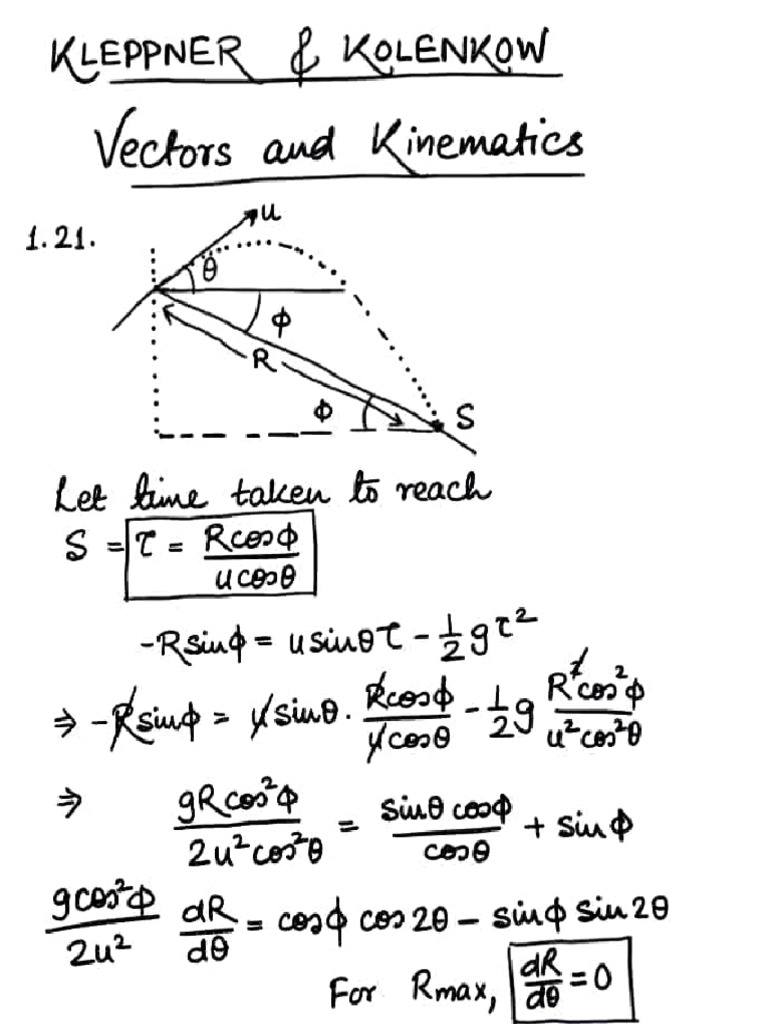 KLEPPNER & KOLENKOW
Vectors and Kinematics
1.21.
u
θ
ϕ
R
ϕ
S
Let time taken to reach
S = τ = Rcosϕ / ucosθ
-Rsinϕ = usinθτ - 1/2 gτ²
⇒ -Rsinϕ = usinθ. Rcosϕ / ucosθ - 1/2 g R²cos²ϕ / u²cos²θ
⇒ gRcos²ϕ / 2u²cos²θ = sinθ cosϕ / cosθ + sinϕ
gcos²ϕ / 2u² dR/dθ = cosϕ cos2θ - sinϕ sin2θ
For Rmax, dR/dθ = 0